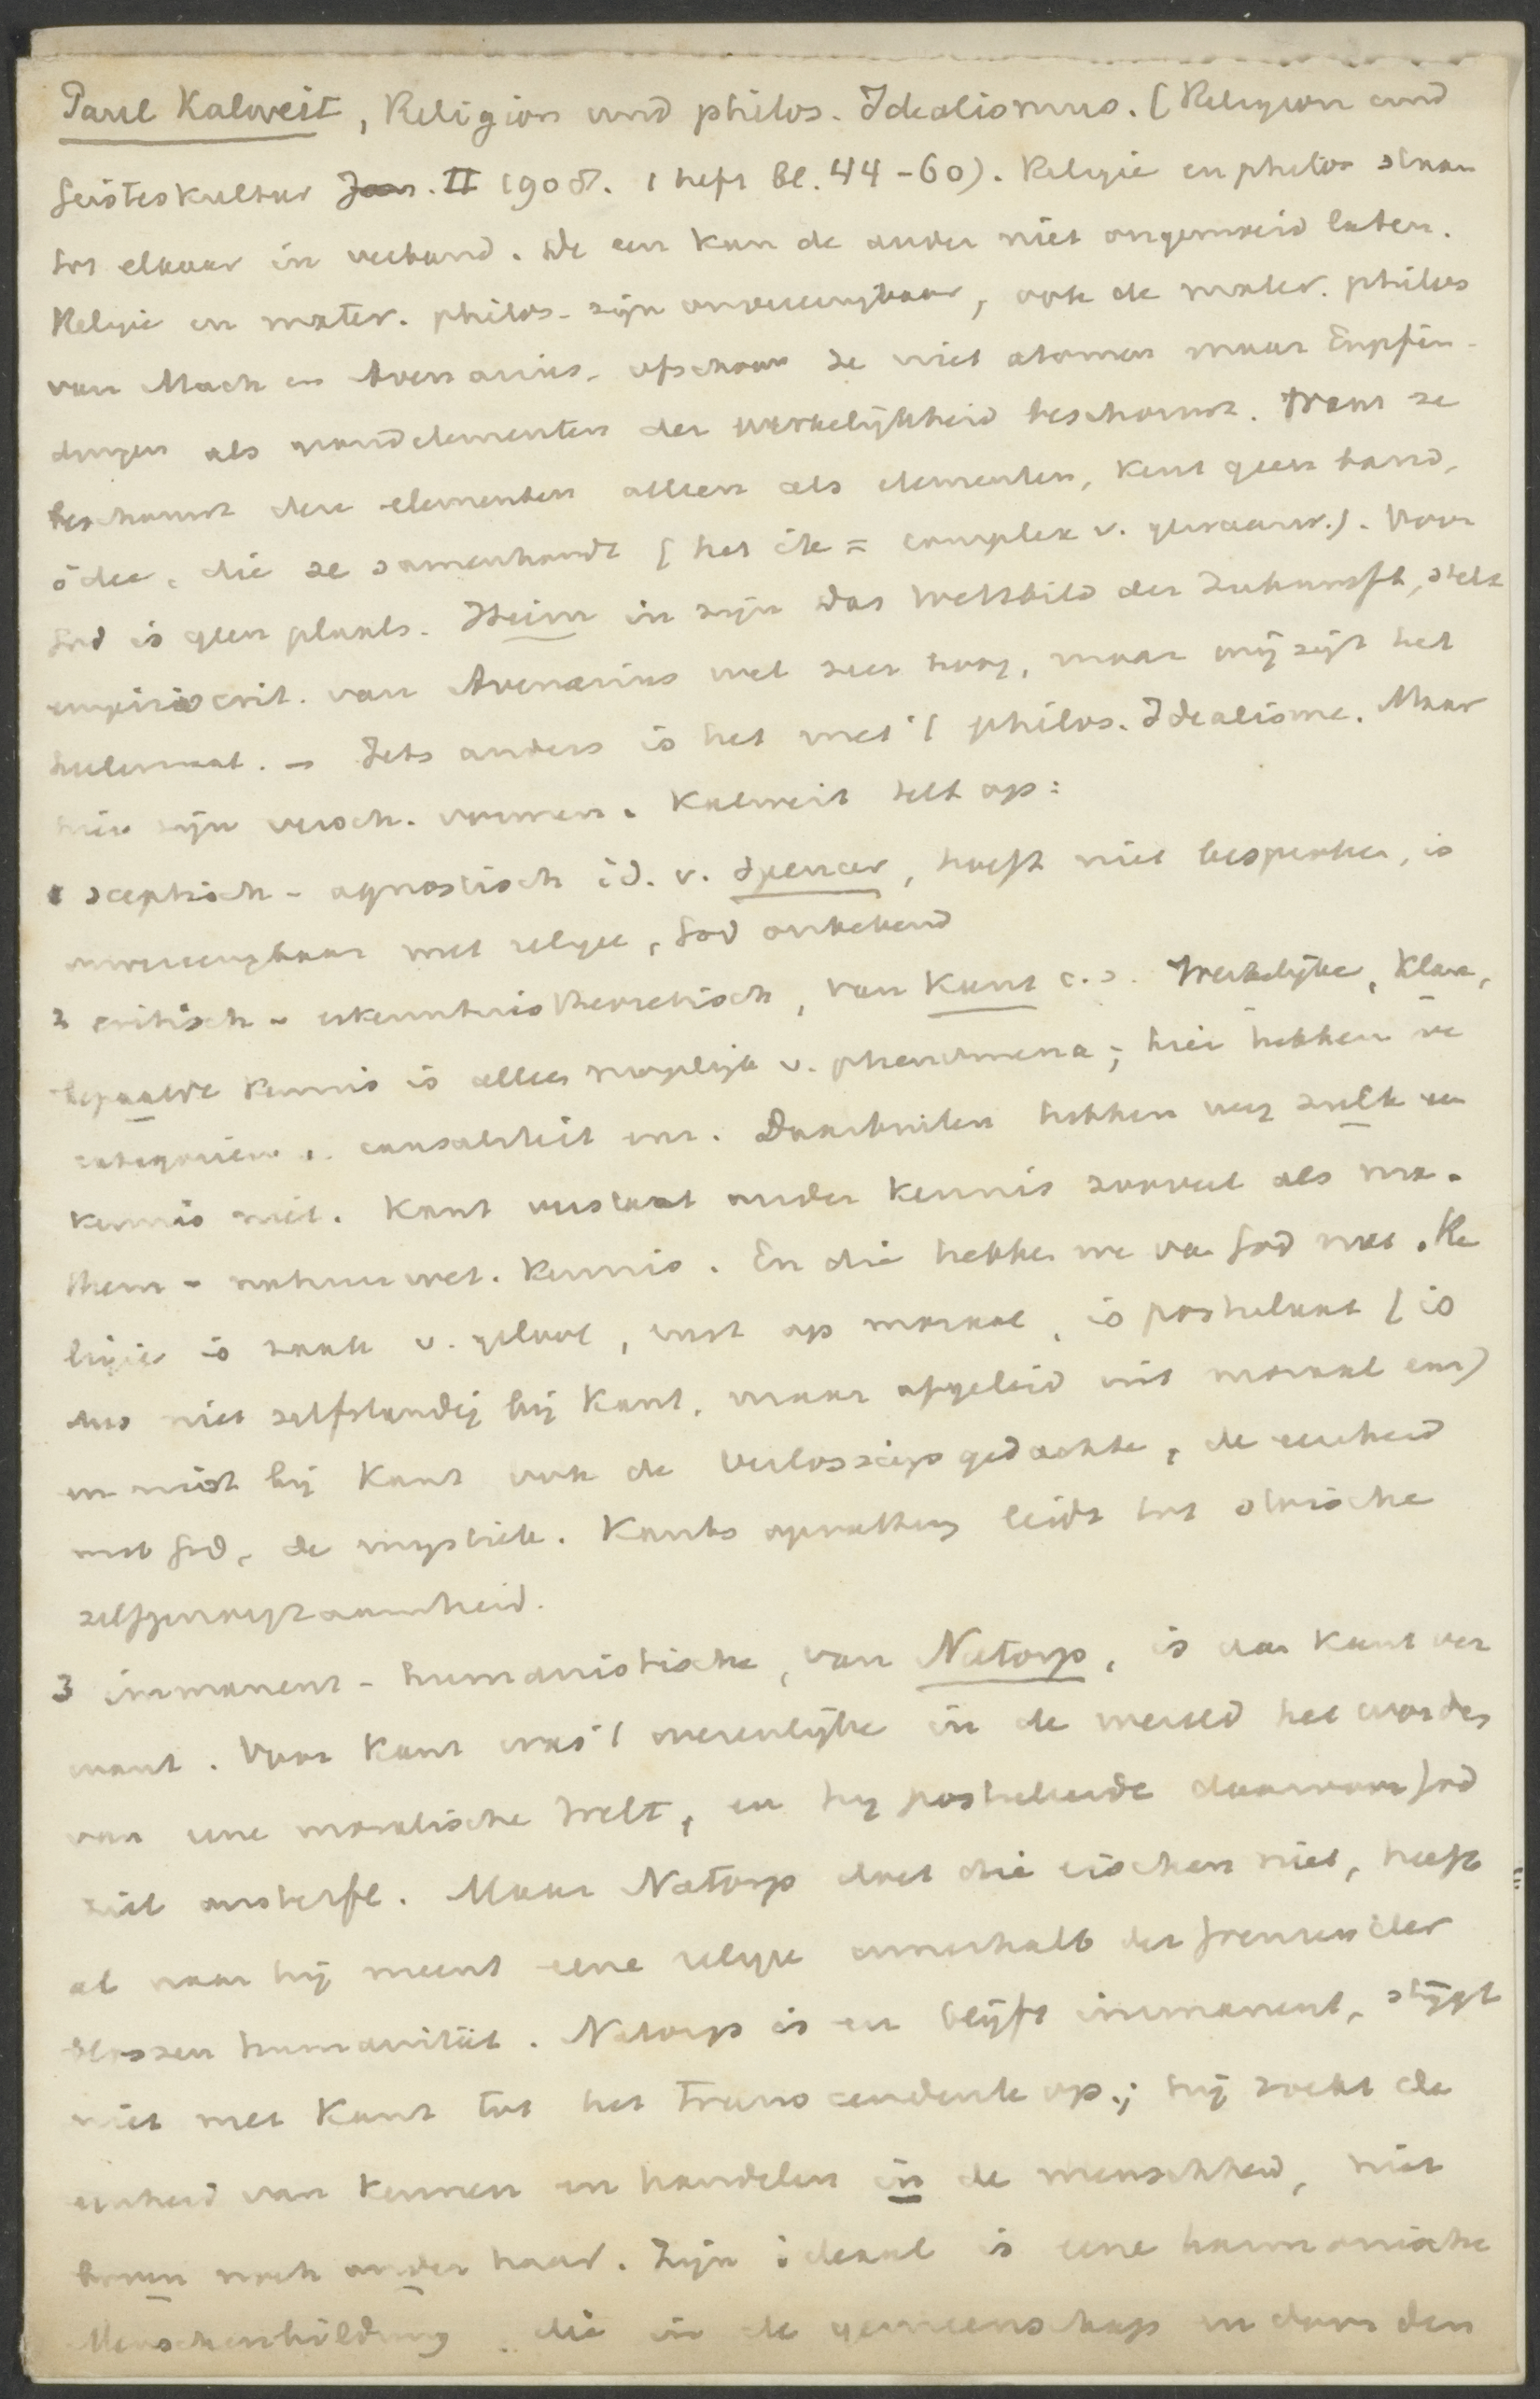 Paul Kalweit, Religion und philos. Idealismus. (Religion und
Geisteskultur II 1908. 1 heft bl. 44-60). Religie en philos staan
tot elkaar in verband. De een kan de ander niet ongemoeid laten.
Religie en mater. philos. zijn onvereenigbaar, ook de mater. philos
van Mach en Avenarius, ofschoon ze niet atomen maar Empfin-
dungen als grondelementen der werkelijkheid beschouwt. Want ze
beschouwt deze elementen alleen als elementen, kent geen band,
idee, die ze samenhoudt (het ik = complex v. gewaarw.). Voor
God is geen plaats. Heim in zijn Das Weltbild der Zukunft, stelt
empiriocrit. van Avenarius wel zeer hoog, maar wijzigt het
helemaal. - Iets anders is het met 't philos. Idealisme. Maar
hier zijn versch. vormen. Kalweit telt op:
1 sceptisch-agnostisch id. v. Spencer, hoeft niet besproken, is
onvereenigbaar met religie, God onbekend
2 critisch-erkenntnistheoretisch, van Kant c.s. Werkelijke, klare,
bepaalde kennis is alleen mogelijk v. phenomena; hier hebben we
categorieen v. causaliteit enz. Daarbuiten hebben wij zulk een
kennis niet. Kant verstaat onder kennis zooveel als ma-
them-natuurwet. kennis. En die hebben we van God niet. Re
ligie is zaak v. geloof, rust op moraal, is postulaat (is
dus niet zelfstandig bij Kant, maar afgeleid uit moraal enz)
en mist bij Kant ook de verlossings gedachte, de eenheid
met God, de mystiek. Kants opvatting leidt tot stoische
zelfgenoegzaamheid.
3 immanent-humanistische, van Natorp, is aan Kant ver
want. Voor Kant was 't wezenlijke in de wereld het worden
van eene moralische Welt, en hij postuleerde daarvoor God
ziel onsterfl. Maar Natorp doet die eischen niet, heeft
al naar hij meent eene religie innerhalb der Grenzen der
blossen humanität. Natorp is en blijft immanent, stijgt
niet met Kant tot het transcendente op; hij zoekt de
eenheid van kennen en handelen in de menschheid, niet
boven noch onder haar. Zijn ideaal is eene harmonische
Menschenbildung, die in de gemeenschap en door den